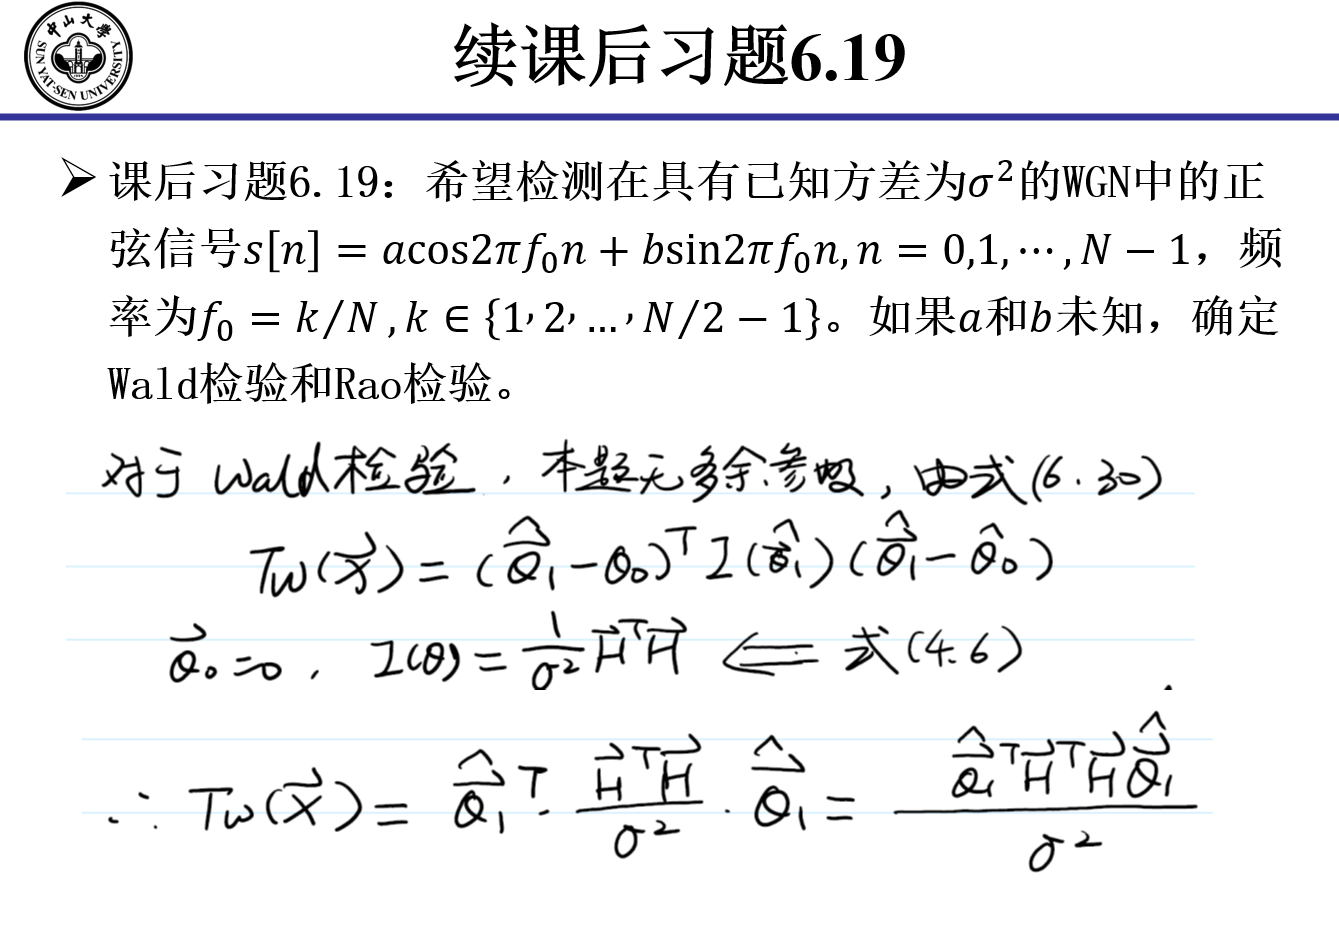 中山大学
SUN YAT-SEN UNIVERSITY
续课后习题6.19
➢ 课后习题6.19：希望检测在具有已知方差为σ²的WGN中的正
弦信号s[n] = acos2πf₀n + bsin2πf₀n, n = 0,1,⋯,N − 1，频
率为f₀ = k/N, k ∈ {1,2,…,N/2 − 1}。如果a和b未知，确定
Wald检验和Rao检验。
对于Wald检验，本题无多余参数，由式(6.30)
T_W(x⃗) = (θ⃗̂₁ − θ₀)ᵀ I(θ⃗̂₁)(θ⃗̂₁ − θ̂₀)
θ⃗₀ = 0, I(θ) = 1/σ² H⃗ᵀH⃗ ⟸ 式(4.6)
∴ T_W(x⃗) = θ⃗̂₁ᵀ · H⃗ᵀH⃗/σ² · θ⃗̂₁ = θ⃗̂₁ᵀH⃗ᵀH⃗θ⃗̂₁/σ²